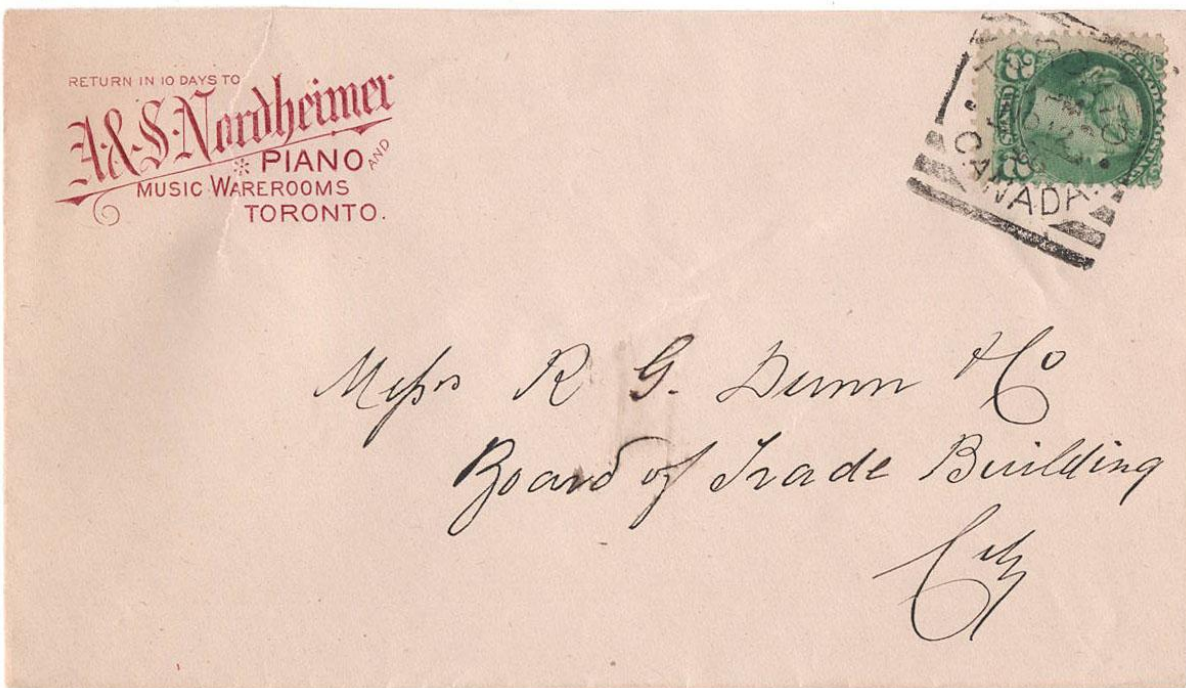 RETURN IN 10 DAYS TO
A.&S. Nordheimer
PIANO AND
MUSIC WAREROOMS
TORONTO.
CANADA.
Messrs R G. Dunn & Co
Board of Trade Building
City